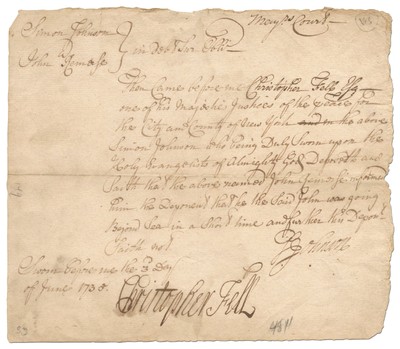 Mayrs Court
Simon Johnson
John
Then Came before me Christopher Fell Esq
one of his Majesties Justices of the peace for
the City and County of New York and in the above
Simon Johnson who being Duly Sworn upon the
Holy Evangelists of Almighty God Deposeth and
Saith that the above named John
him the Deponent that he the Said John was going
Beyond Sea in a Short time and further this Depont
Saith not
Sworn before me the 3 Day
of June 1738.
Christopher Fell